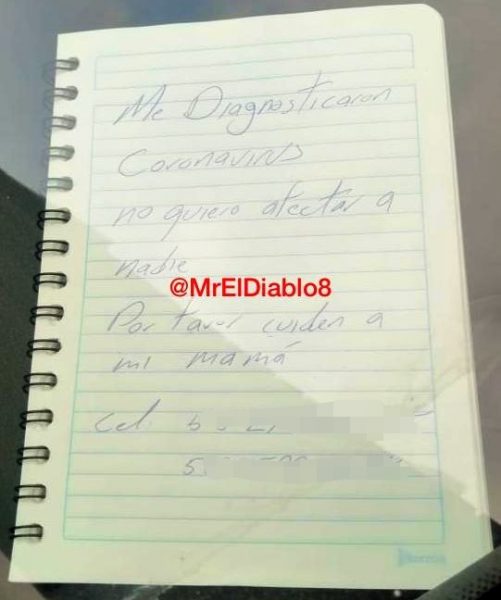 Me Diagnosticaron
Coronavirus
no quiero afectar a
nadie
@MrElDiablo8
Por favor cuiden a
mi mamá
Cel.